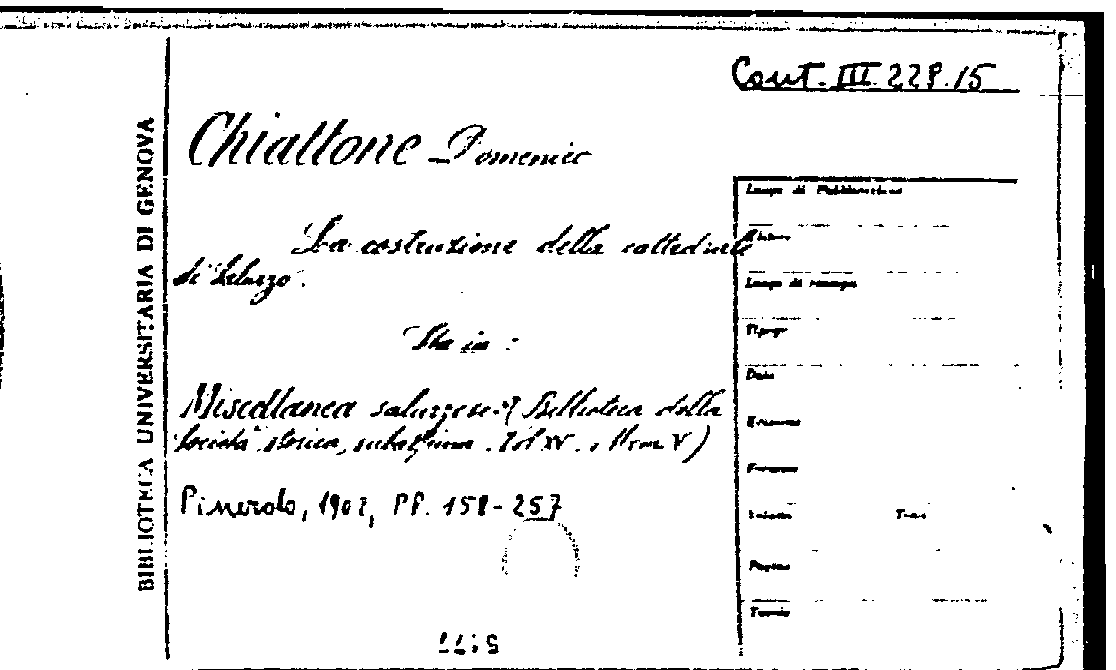 Cont. III 228.15
BIBLIOTECA UNIVERSITARIA DI GENOVA
Chiattone Domenico
La costruzione della cattedrale
di Saluzzo.
Sta in :
Miscellanea saluzzese (Biblioteca della
Società storica subalpina. Vol XV.
Pinerolo, 1902, PP. 158-257
Luogo di Pubblicazione
Editore
Luogo di stampa
Tipogr
Data
Volume
Tomi
Pagine